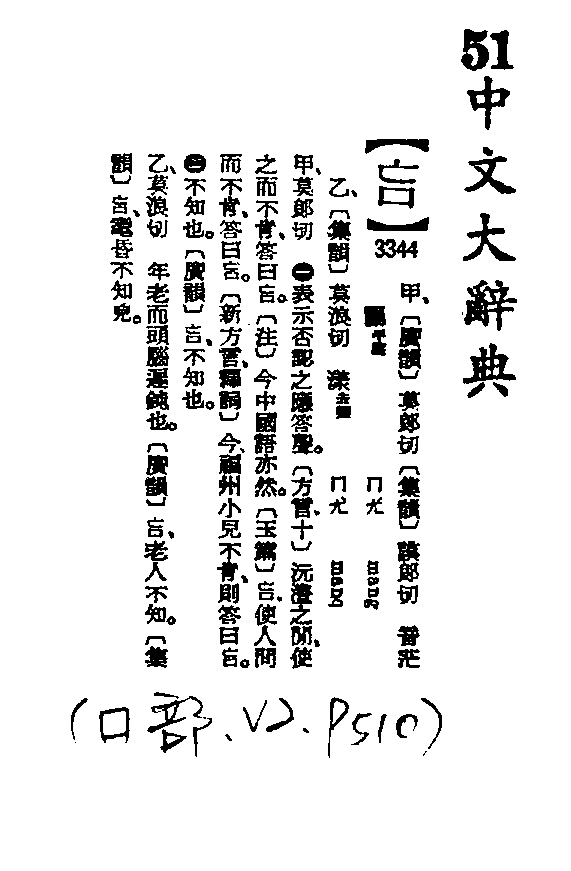 51中文大辭典
【吂】3344
甲、〔廣韻〕莫郎切〔集韻〕謨郎切 音茫
陽平聲 ㄇㄤ mang
乙、〔集韻〕莫浪切 漾去聲 ㄇㄤ mang
甲、莫郎切 ㊀表示否認之應答聲。〔方言十〕沅澧之閒、使
之而不肯、答曰吂。〔注〕今中國語亦然。〔玉篇〕吂、使人問
而不肯、答曰吂。〔新方言釋詞〕今福州小兒不肯、則答曰吂。
㊁不知也。〔廣韻〕吂、不知也。
乙、莫浪切 年老而頭腦遲鈍也。〔廣韻〕吂、老人不知。〔集
韻〕吂、老昏不知皃。
(口部、V2、P510)